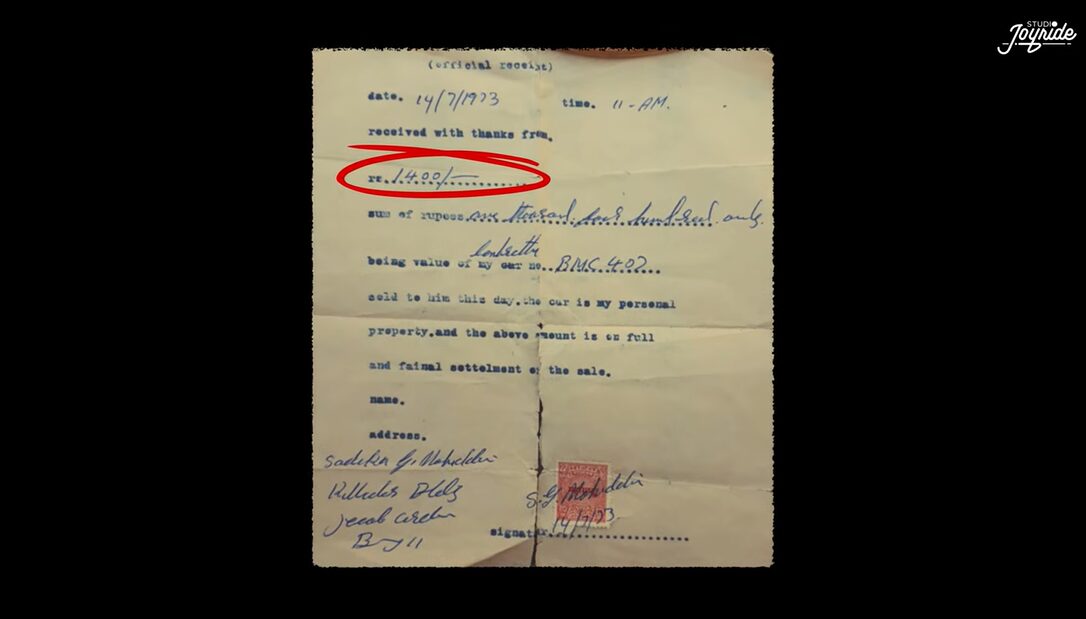 STUDIO
Joyride
(official receipt)
date. 14/7/1973 time. 11-AM.
received with thanks from.
rs. 1400/-
sum of rupees. one thousand four hundred only.
being value of my car no.. BMC 407
sold to him this day.the car is my personal
property.and the above amount is on full
and fainal settelment of the sale.
name.
address.
Jacob Circle
S.G. Mohiuddin
14/7/73
signatur